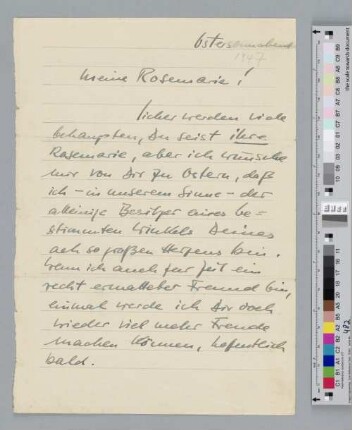 Ostersonnabend
1947
Meine Rosemarie!
Sicher werden viele
behaupten, Du seist ihre
Rosemarie, aber ich wünsche
mir von Dir zu Ostern, daß
ich - in unserem Sinne - der
alleinige Besitzer eines be=
stimmten Winkels Deines
ach so großen Herzens bin.
Wenn ich auch zur Zeit ein
recht ermatteter Freund bin,
einmal werde ich Dir doch
wieder viel mehr Freude
machen können, hoffentlich
bald.
482